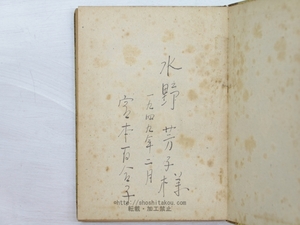 水野芳子様
一九四九年二月
宮本百合子
http://shoshitakou.com/
転載・加工禁止